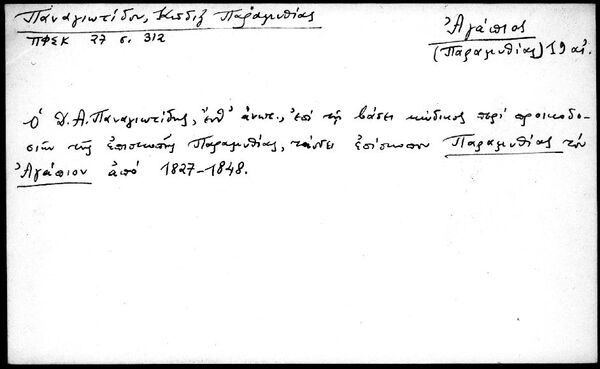 Παναγιωτίδου, Κῶδιξ Παραμυθίας
ΠΦΣΚ 27 σ. 312
Ἀγάπιος
(Παραμυθίας) 19 αἰ.
Ὁ Δ. Α. Παναγιωτίδης, ἔνθ' ἀνωτ., ἐπὶ τῇ βάσει κώδικος περὶ προικοδο-
σιῶν τῆς ἐπισκοπῆς Παραμυθίας, τάσσει ἐπίσκοπον Παραμυθίας τὸν
Ἀγάπιον ἀπὸ 1827-1848.